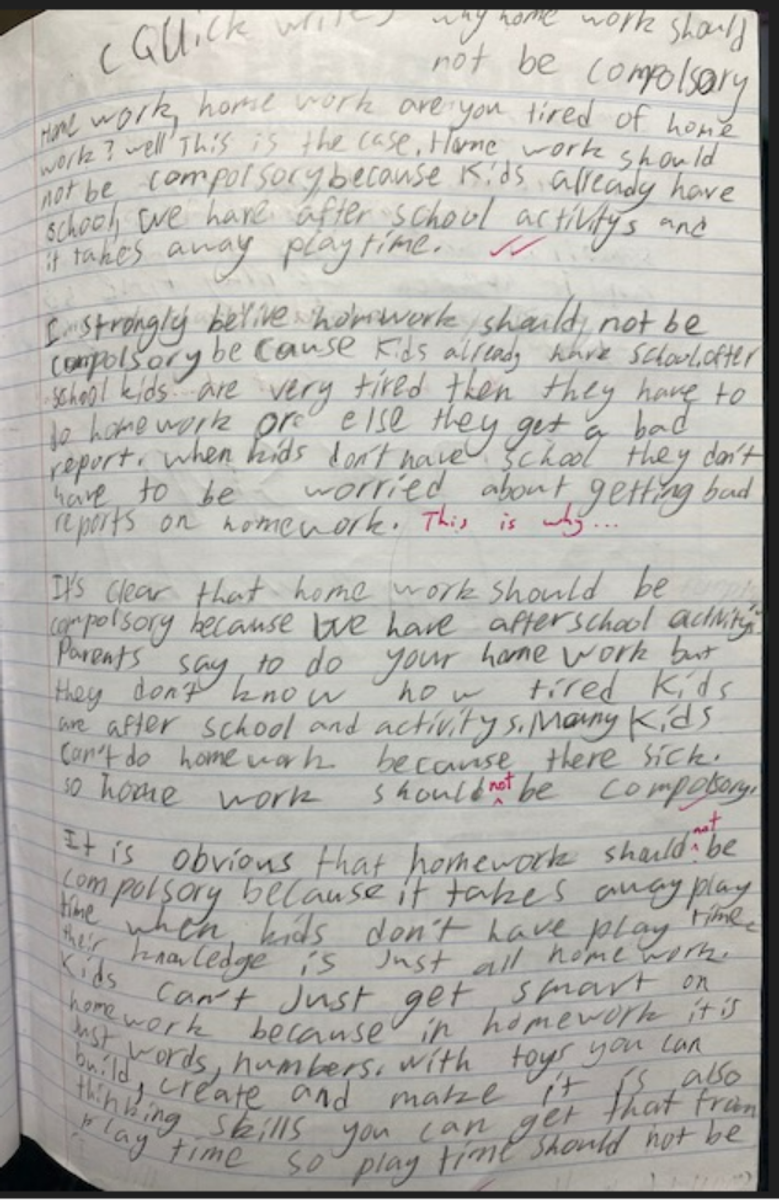 ( Quick writes why home work should
not be compolsory
Home work, home work are you tired of home
work? well This is the case. Home work should
not be compolsory because kids already have
school, we have after school activitys and
it takes away playtime.
I strongly belive homework should not be
compolsory because kids already have school. after
school kids are very tired then they have to
do homework or else they get a bad
report. when kids don't have school they don't
have to be worried about getting bad
reports on homework. This is why...
It's clear that home work should be
compolsory because we have afterschool activitys.
Parents say to do your home work but
they don't know how tired kids
are after school and activitys. Many kids
can't do homework because there sick.
so home work should not be compolsory.
It is obvious that homework should not be
compolsory because it takes away play
time when kids don't have play time
their knowledge is Just all homework.
Kids can't Just get smart on
homework because in homework it is
Just words, numbers. with toys you can
build, create and make it is also
thinking skills you can get that from
play time so play time should not be